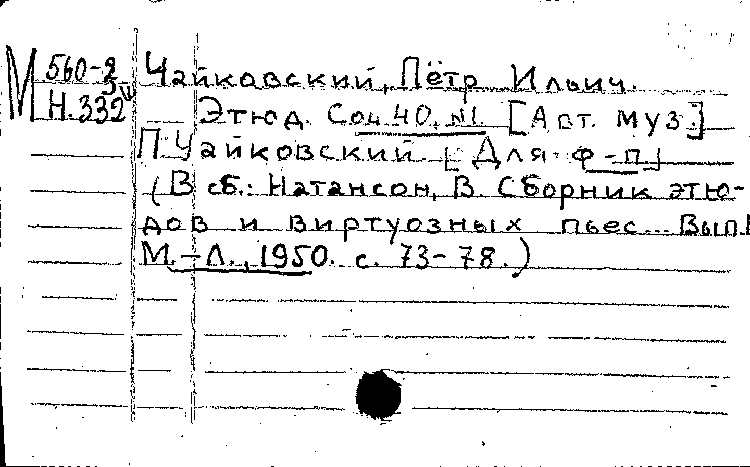 М 560-2 Чайковский, Пётр Ильич.
Н.332 Этюд. Соч 40, №1. [Авт. муз.]
П. Чайковский. [Для ф-п]
(В сб.: Натансон, В. Сборник этю-
дов и виртуозных пьес... Вып.
М.-Л., 1950. с. 73-78.)